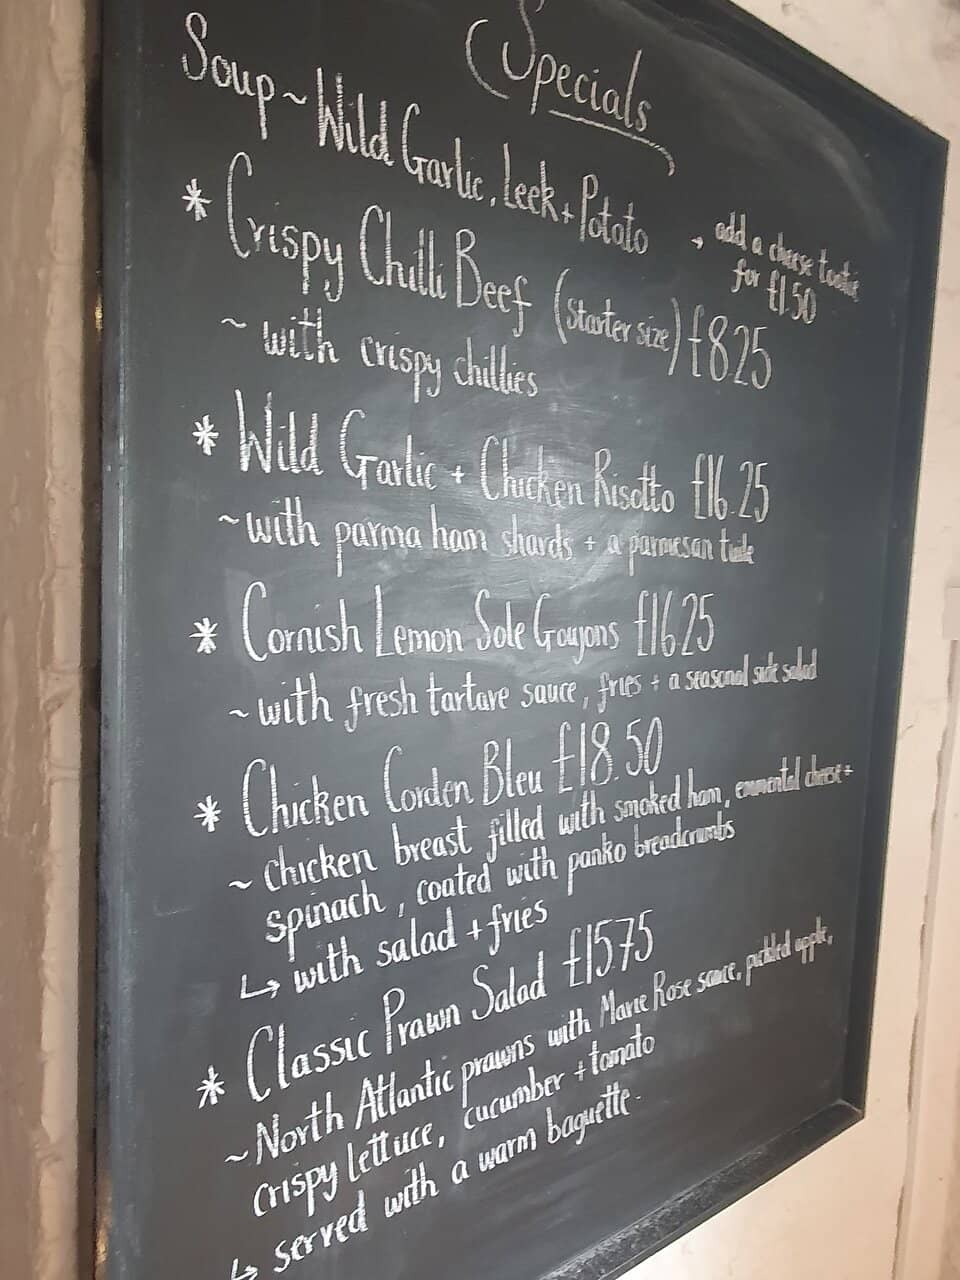 Specials
Soup ~ Wild Garlic, Leek + Potato
→ add a cheese toastie
for £1.50
* Crispy Chilli Beef (starter size) £8.25
~ with crispy chillies
* Wild Garlic + Chicken Risotto £16.25
~ with parma ham shards + a parmesan tuile
* Cornish Lemon Sole Goujons £16.25
~ with fresh tartare sauce, fries + a seasonal side salad
* Chicken Corden Bleu £18.50
~ chicken breast filled with smoked ham, emmental cheese +
spinach, coated with panko breadcrumbs
↳ with salad + fries
* Classic Prawn Salad £15.75
~ North Atlantic prawns with Marie Rose sauce, pickled apple,
crispy lettuce, cucumber + tomato
↳ served with a warm baguette.